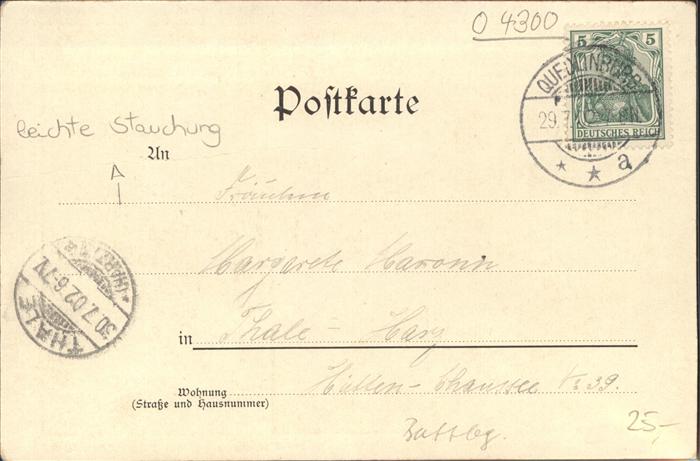 O 4300
5 5
DEUTSCHES REICH
QUEDLINBURG
29.7.
a
Postkarte
leichte Stauchung
An
Fräulein
Margarete
THALE (HARZ)
30.7.02.6-7V.
in Thale - Harz
Wohnung
(Straße und Hausnummer)
Hütten-Chaussee 39.
25,-